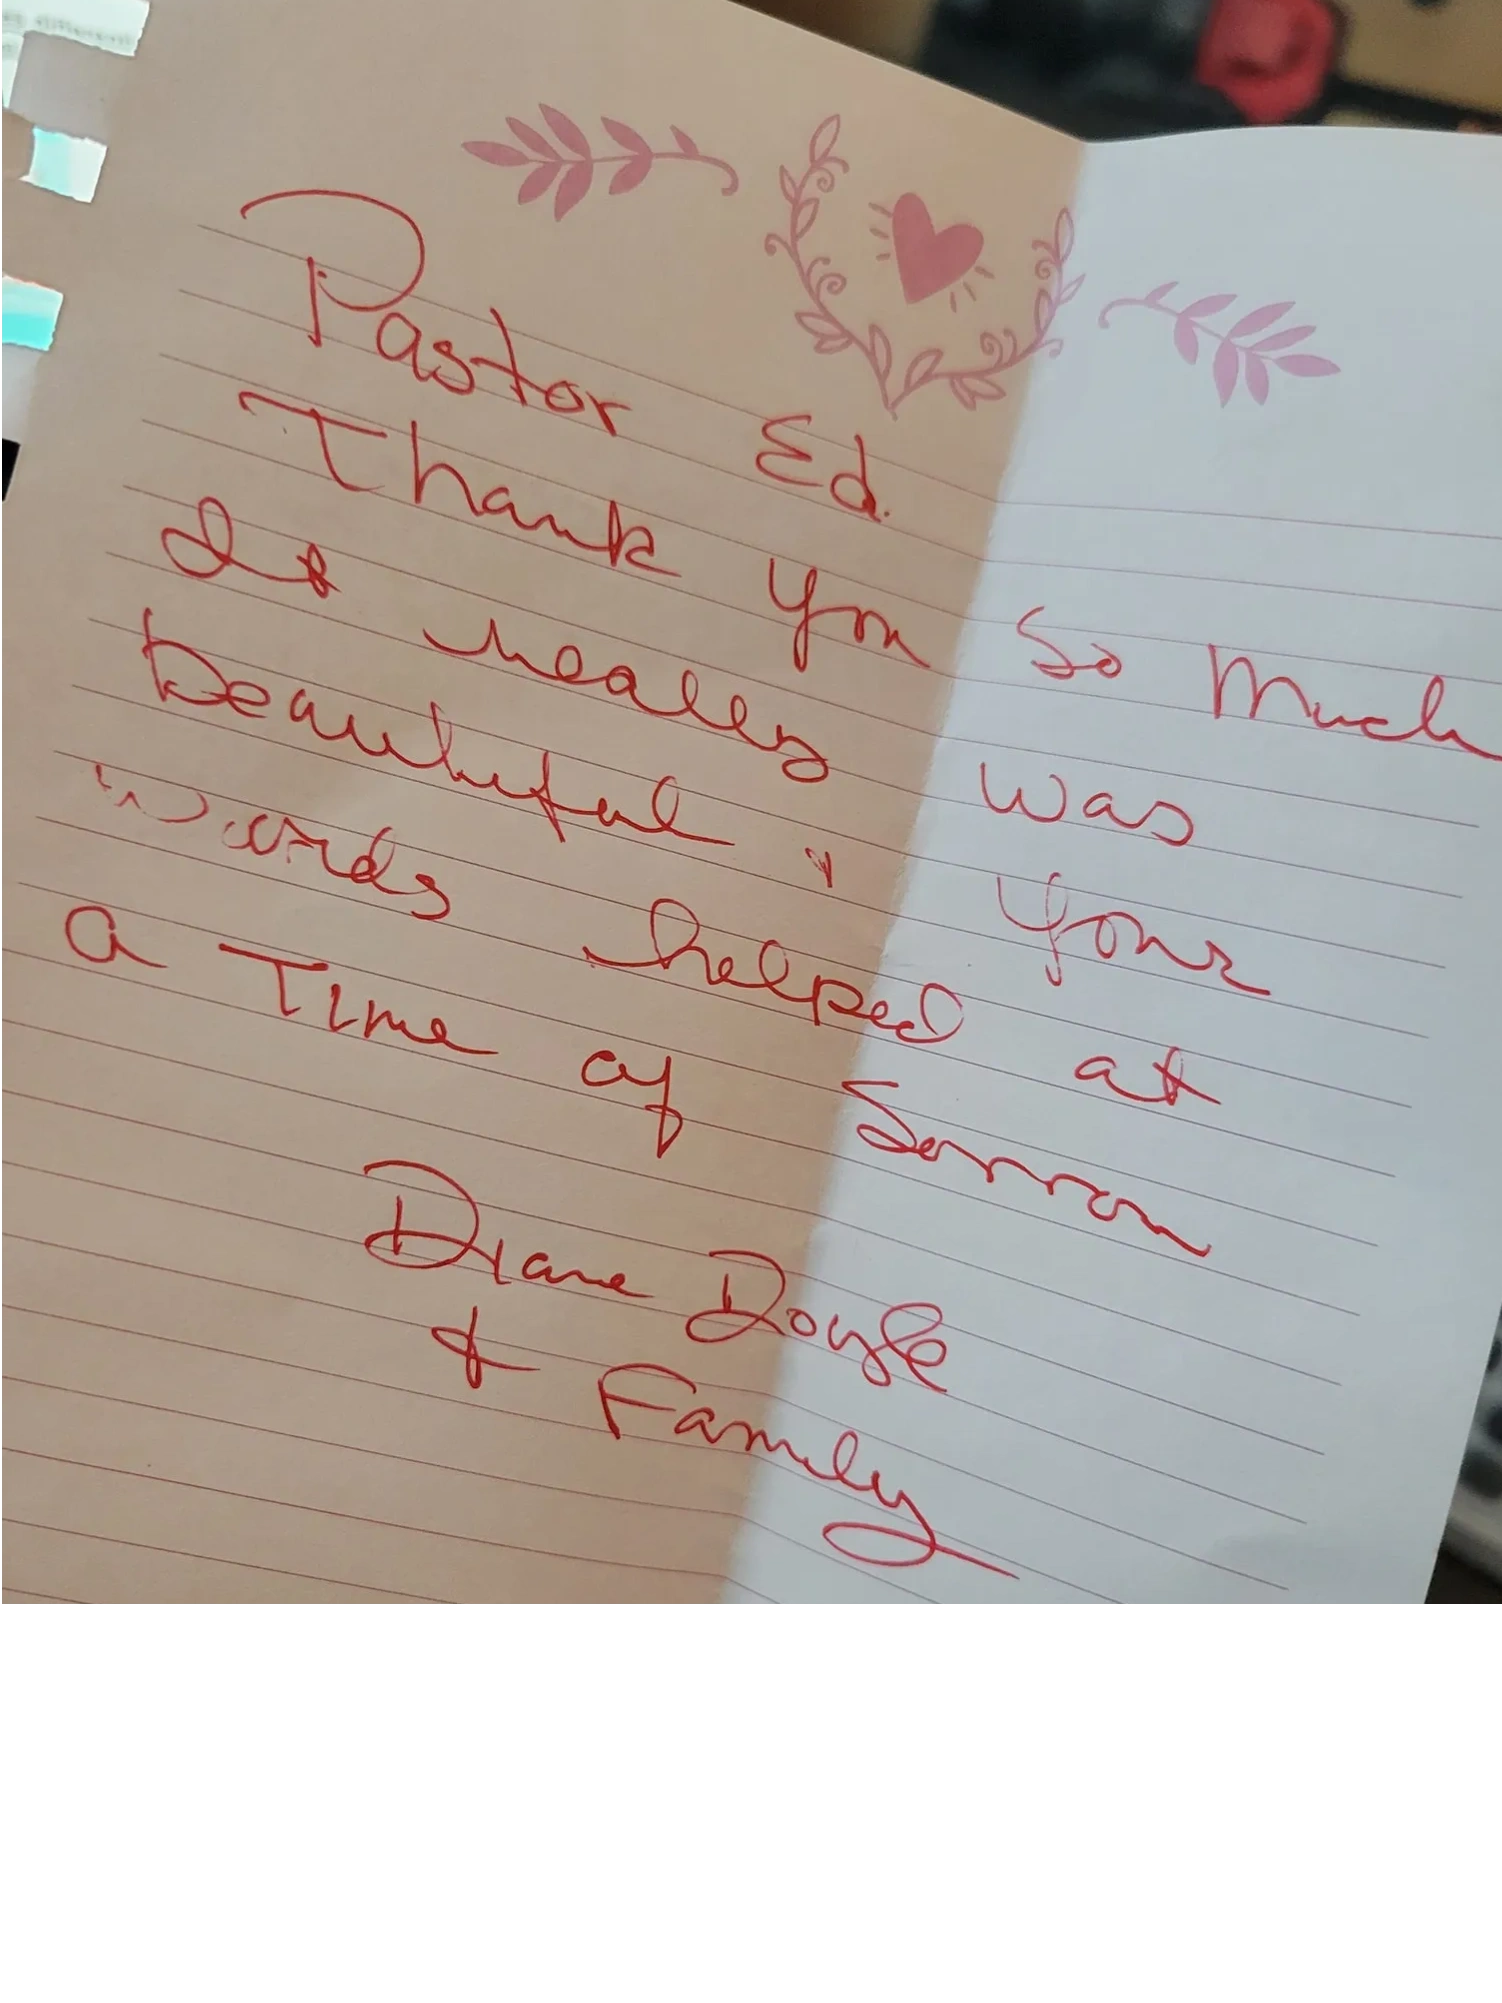 different
Pastor Ed.
Thank you so Much
It really was
beautiful & your
words helped at
a Time of Sorrow
Diane Doyle
& Family